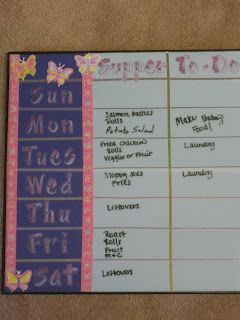 Supper To-Do
Sun
Mon
Salmon Patties
Rolls
Potato Salad
Make Baby
Food!
Tues
Fried Chicken
Rolls
Veggies or Fruit
Laundry
Wed
Sloppy Joes
Fries
Laundry
Thu
Leftovers
Fri
Roast
Rolls
Fruit
M+C
Sat
Leftovers